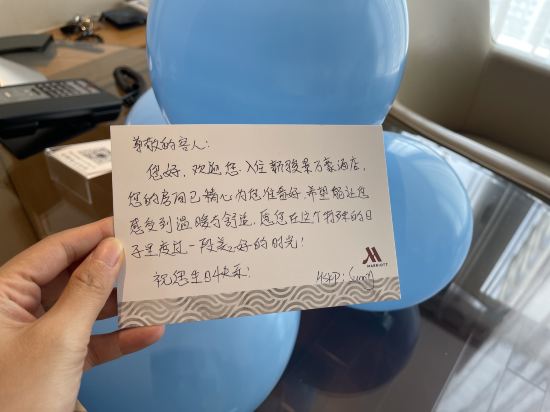 尊敬的客人:
您好,欢迎您入住新骏景万豪酒店,
您的房间已精心为您准备好,希望能让您
感受到温暖与舒适,愿您在这个特殊的日
子里度过一段美好的时光!
祝您生日快乐!
MARRIOTT
HSKP: